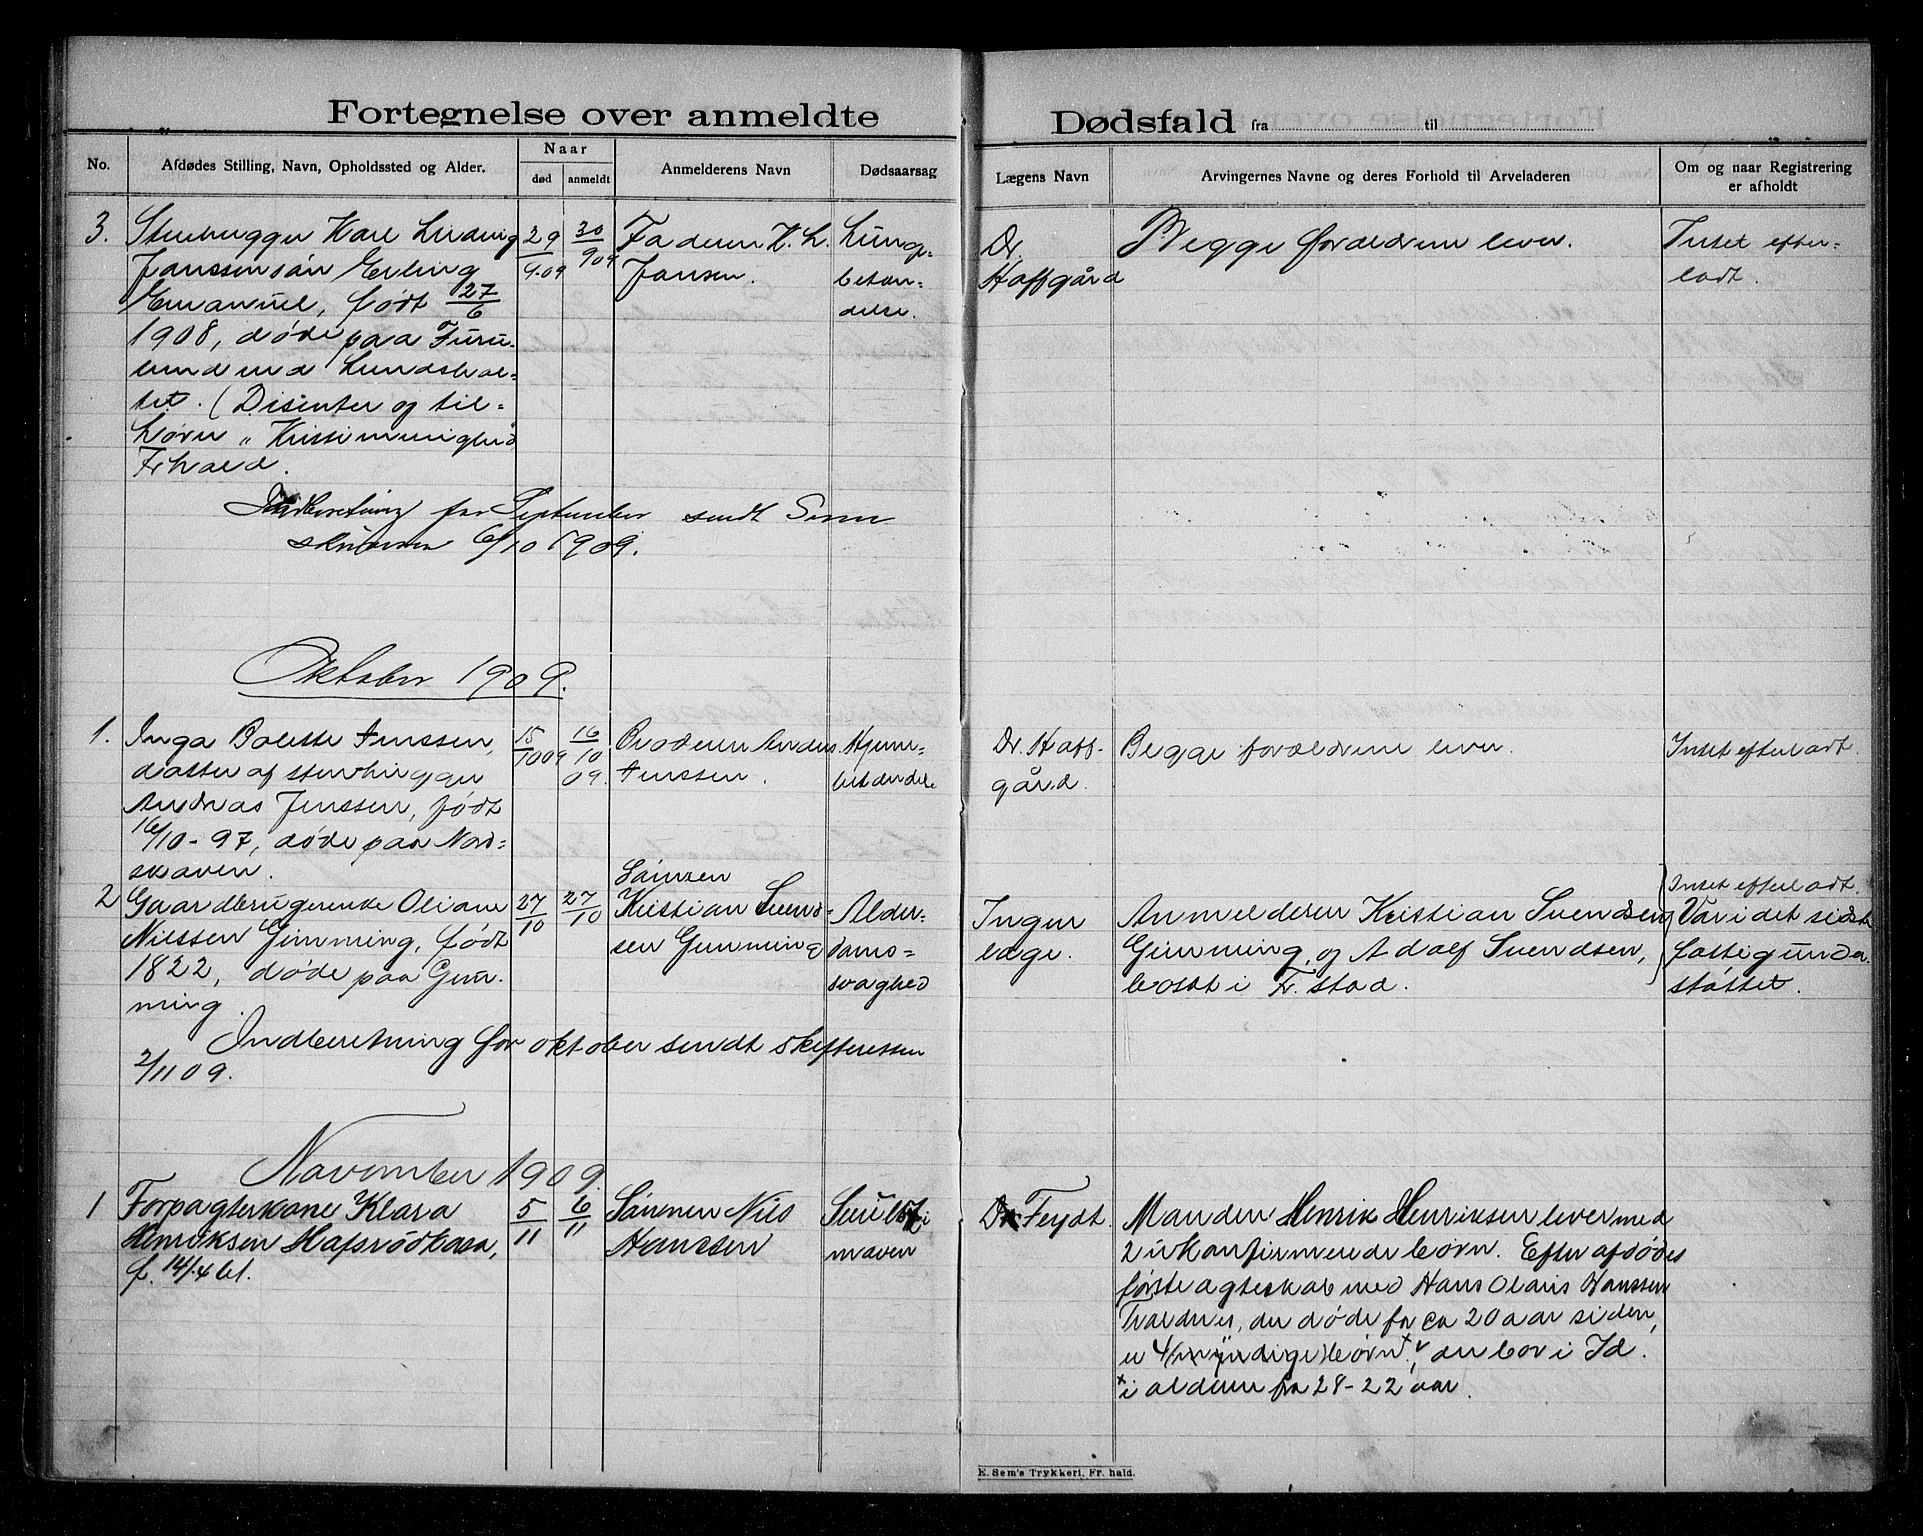 Fortegnelse over anmeldte Dødsfald fra til
No.
Afdødes Stilling, Navn, Opholdssted og Alder.
Naar
død
anmeldt
Anmelderens Navn
Dødsaarsag
Lægens Navn
Arvingernes Navne og deres Forhold til Arveladeren
Om og naar Registrering
er afholdt
3.
Stenhugger Karl Ludvig
Janssens søn Erling
Emanuel, født 27/6
1908, døde paa Furu-
lund ved
tet. (Disenter og til-
hører „
Fr.hald.
29/9-09
30/9 09
Faderen K. L.
Jansen.
Lunge-
betæn-
delse.
Dr.
Haffgård
Begge forældrene lever.
Intet efter-
ladt.
Indberetning for September sendt Soren-
skriveren 6/10 1909.
Oktober 1909.
1.
Inga Bolette Jenssen,
datter af stenhugger
Andreas Jenssen, født
16/10-97, døde paa Nord-
skaven.
15/10 09
16/10 09.
Broderen Anders
Jenssen.
Hjerne-
betændelse
Dr. Haff-
gård.
Begge forældrene lever.
Intet efterladt.
2
Gaardbrugerenke Oliane
Nilssen Gimming, født
1822, døde paa Gim-
ming.
27/10
27/10
Sønnen
Kristian Svend-
sen Gimming
Alder-
doms-
svaghed
Ingen
læge.
Anmelderen Kristian Svendsen
Gimming, og Adolf Svendsen,
bosat i Fr.stad.
Intet efterladt.
Var i det sidste
fattigunder-
støttet.
Indberetning for oktober sendt skifteretten
2/11 09.
November 1909.
1
Forpagterkone Klara
Henriksen Hafsrødkasa,
f. 14/4 61.
5/11
6/11
Sønnen Nils
Hanssen
Svulst i
maven
Dr. Feydt.
Manden Henrik Henriksen lever med
2 ukonfirmerede børn. Efter afdødes
første ægteskab med Hans Olaus Hanssen
der døde for ca 20 aar siden,
er 4 (myndige) børn x, der bor i Id.
x i alderen fra 28-22 aar.
E. Sem's Trykkeri, Fr. hald.